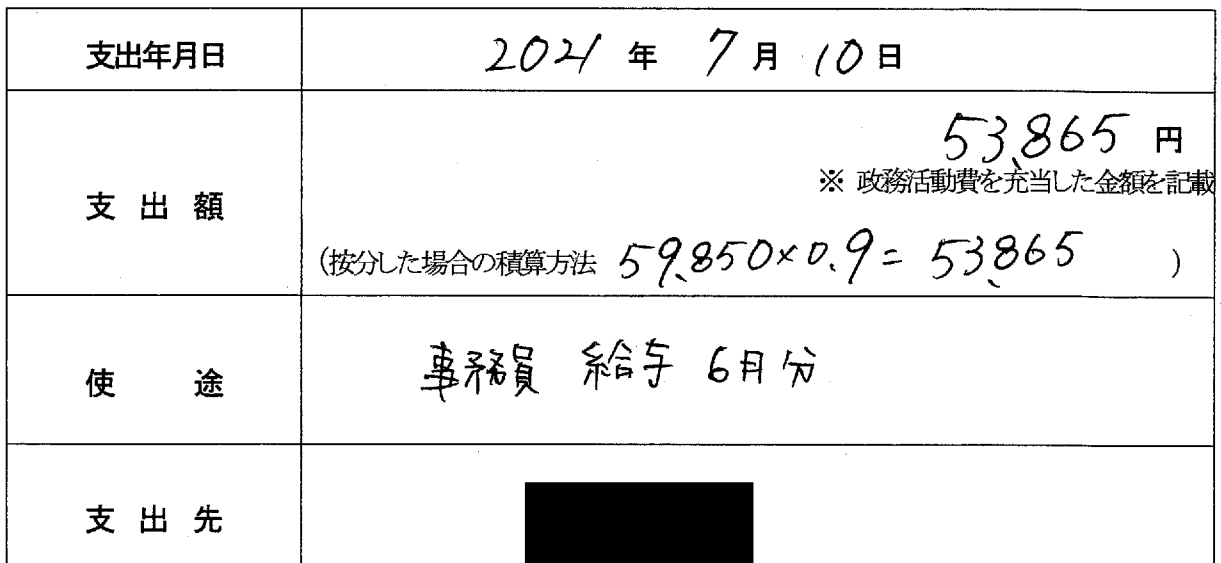 支出年月日 2021 年 7 月 10 日
支出額 53,865 円
※ 政務活動費を充当した金額を記載
(按分した場合の積算方法 59,850×0.9= 53,865 )
使途 事務員 給与 6月分
支出先